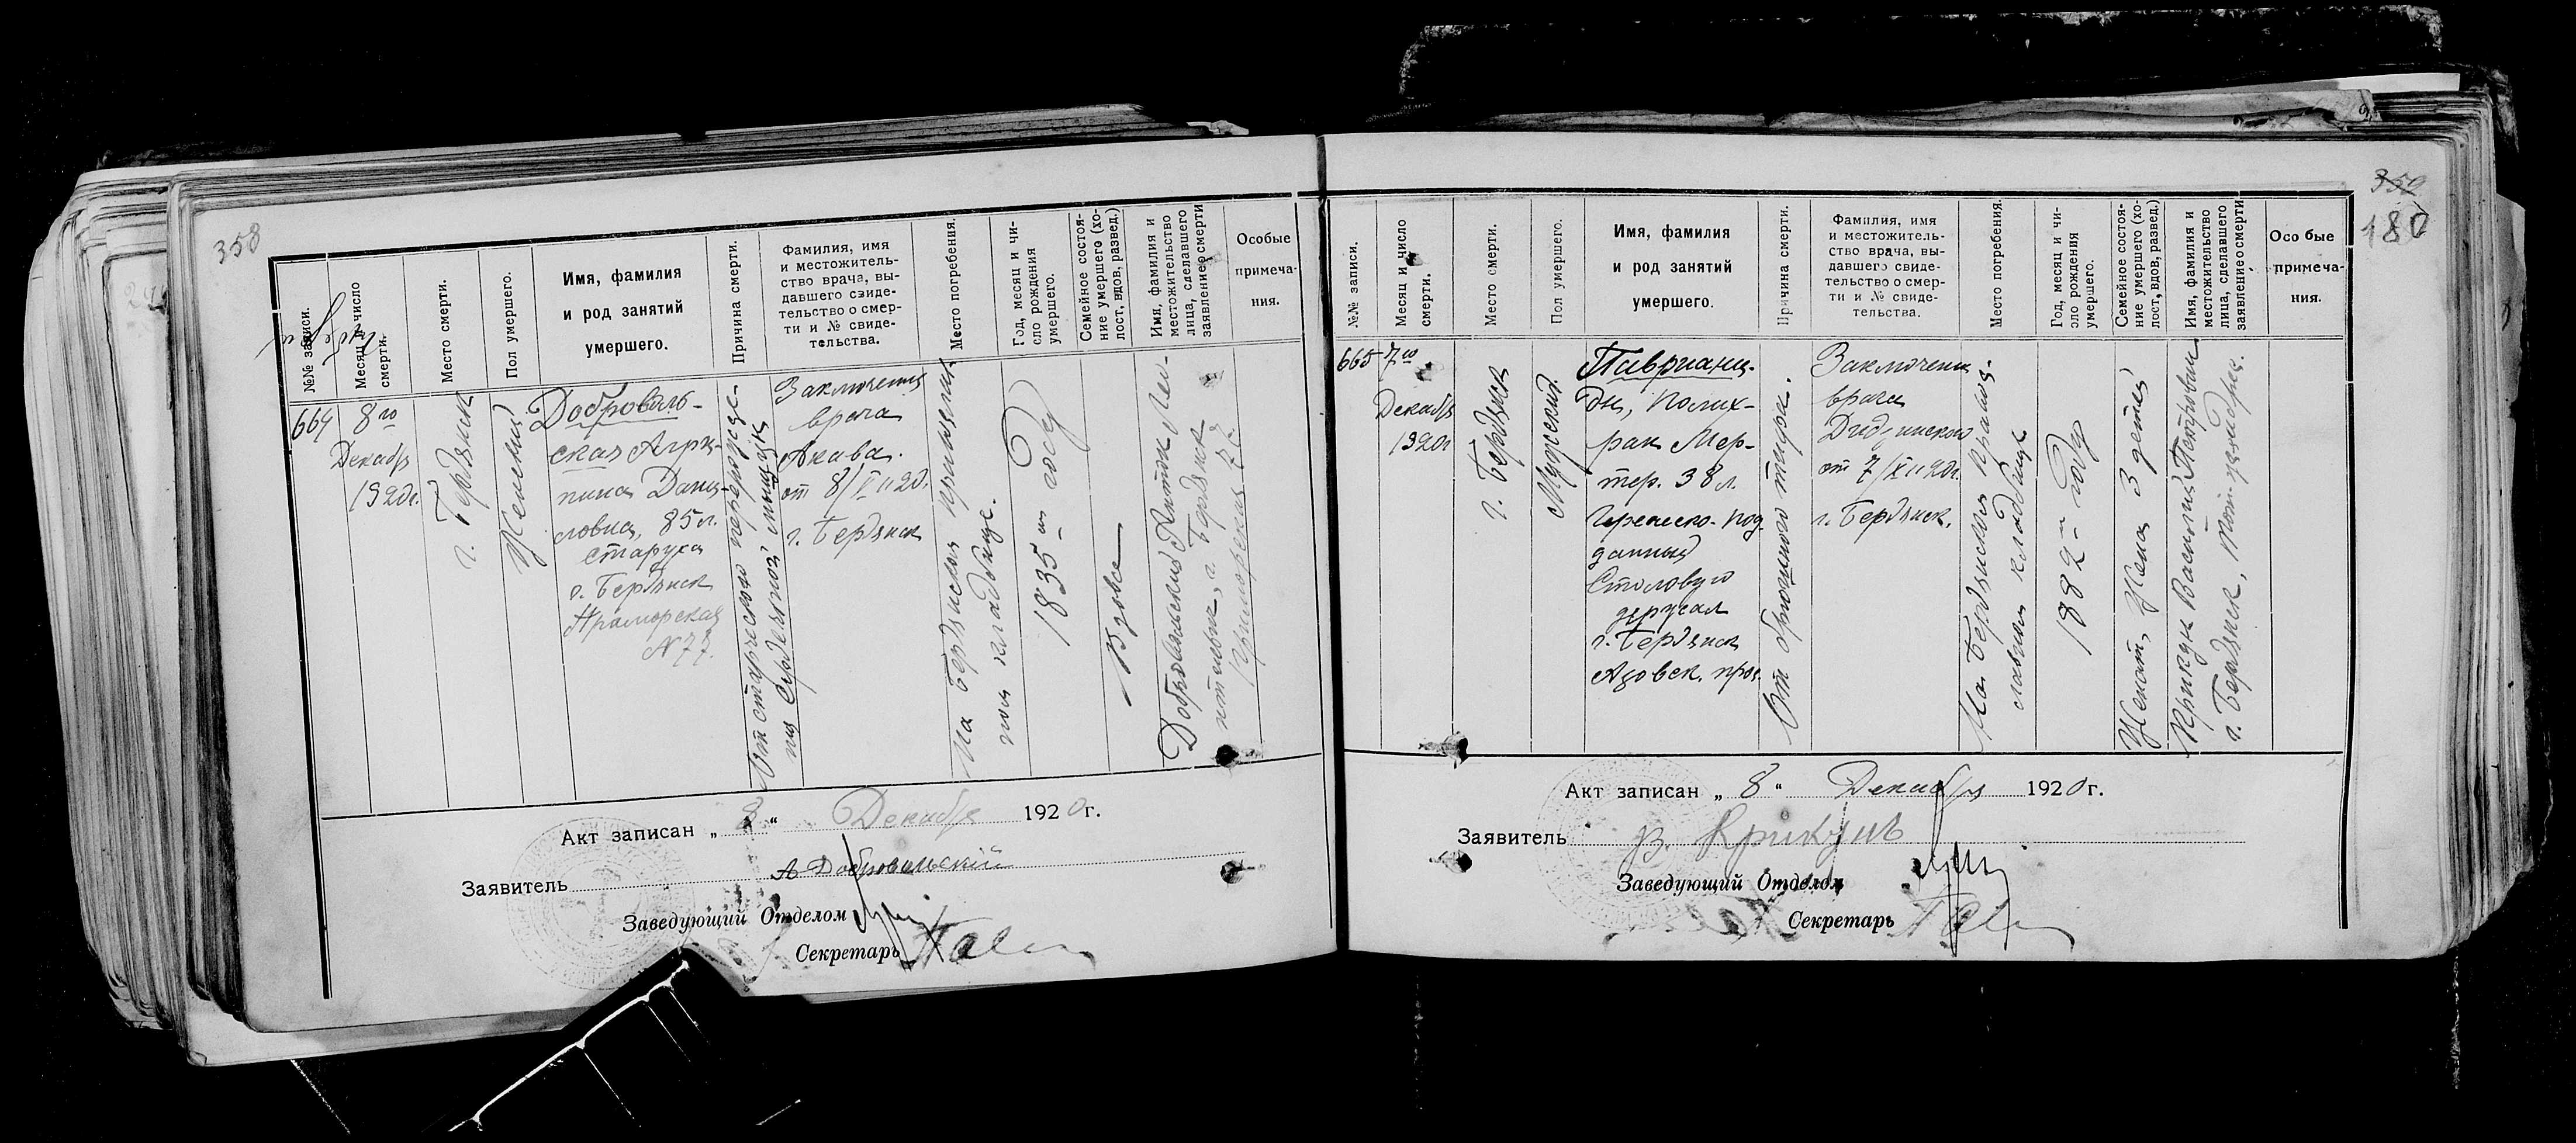 358
№№ записи.
Месяц и число
смерти.
Место смерти.
Пол умершего.
Имя, фамилия
и род занятий
умершего.
Причина смерти.
Фамилия, имя
и местожитель-
ство врача, вы-
давшего свиде-
тельство о смер-
ти и № свиде-
тельства.
Место погребения.
Год, месяц и чи-
сло рождения
умершего.
Семейное состоя-
ние умершего (хо-
лост, вдов, развед.)
Имя, фамилия и
местожительство
лица, сделавшего
заявление о смерти
Особые
примеча-
ния.
664
8го
Декабр
1920г.
г. Бердянск
Женский
Доброволь-
ская Агрип-
пина Дани-
ловна, 85 л.
старуха
г. Бердянск
Приморская
N 77.
От старческого перерожде-
ния сердечной мышцы
Заключение
врача
Акава.
от 8/XII 20.
г. Бердянск
На Бердянском
ном кладбище.
1835 году
Вдова
Добровольский
г. Бердянск
Приморская 77.
Акт записан „ 8 “ Декабр 1920 г.
Заявитель А Добровольскій
Заведующий Отделом
Секретарь
359
180
№№ записи.
Месяц и число
смерти.
Место смерти.
Пол умершего.
Имя, фамилия
и род занятий
умершего.
Причина смерти.
Фамилия, имя
и местожитель-
ство врача, вы-
давшего свиде-
тельство о смер-
ти и № свиде-
тельства.
Место погребения.
Год, месяц и чи-
сло рождения
умершего.
Семейное состоя-
ние умершего (хо-
лост, вдов, развед.)
Имя, фамилия и
местожительство
лица, сделавшего
заявление о смерти
Особые
примеча-
ния.
665
7го
Декабр
1920г
г. Бердянск
Мужской.
Тавриани-
ди, Полих-
ран Мер-
тер. 38 л.
Греческо-под-
данный
Столовую
держал
г. Бердянск
Азовск. просп.
От брюшного тифа.
Заключение
врача
от 7/XII 20г.
г. Бердянск.
На Бердянском правос-
лавном кладбище
1882 году
Женат, Жена 3 детей
Крикун Василий Петрович
г. Бердянск,
Акт записан „ 8 “ Декабря 1920 г.
Заявитель В. Крикунъ
Заведующий Отделом
Секретарь